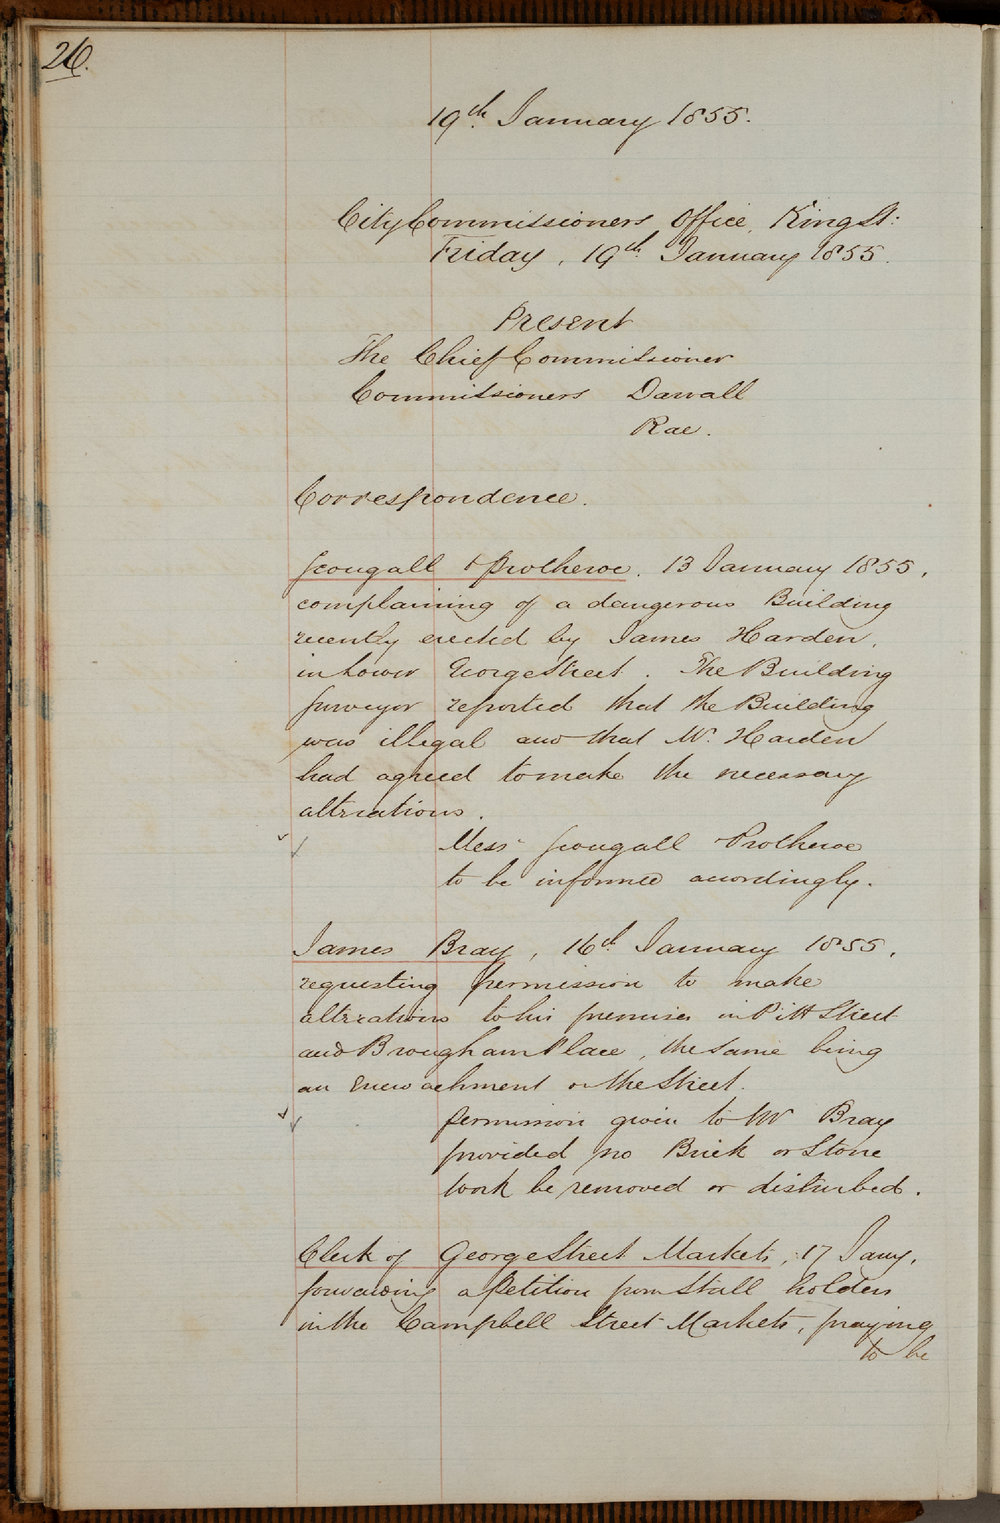 26.
19th. January 1855.
City Commissioners Office, King St:
Friday, 19th. January 1855.
Present
The Chief Commissioner
Commissioners Darvall
Rae.
Correspondence.
Gougall & Protheroe. 13 January 1855,
complaining of a dangerous Building
recently erected by James Harden,
in Lower George Street. The Building
Surveyor reported that the Building
was illegal and that Mr. Harden
had agreed to make the necessary
alterations.
Messrs Gougall Protheroe
to be informed accordingly.
James Bray, 16th. January 1855,
requesting permission to make
alterations to his premises in Pitt Street
and Brougham Place, the same being
an encroachment on the Street.
Permission given to Mr Bray
provided no Brick or Stone
work be removed or disturbed.
Clerk of George Street Markets, 17 Jany,
forwarding a Petition from Stall holders
in the Campbell Street Markets, praying
to be